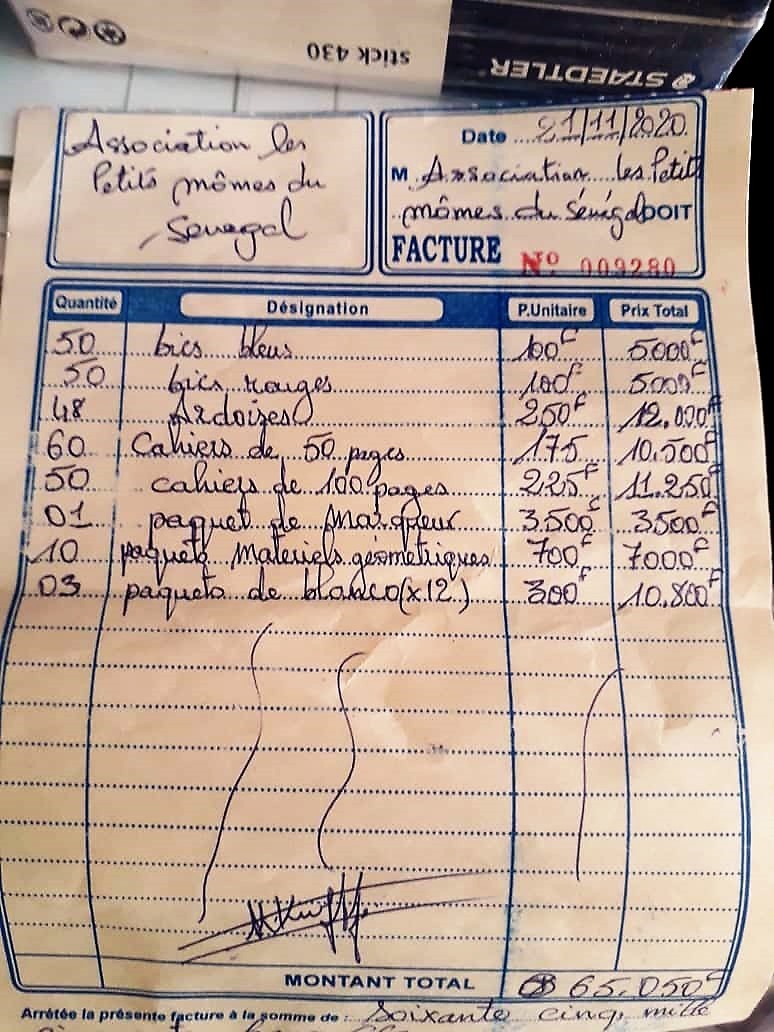 STAEDTLER
stick 430
Association les
Petits mômes du
Senegal
Date 21/11/2020
M Association les Petits
mômes du Sénégal DOIT
FACTURE N° 009280
Quantité Désignation P.Unitaire Prix Total
50 bics bleus 100F 5000F
50 bics rouges 100F 5000F
48 Ardoizes 250F 12.000F
60 Cahiers de 50 pages 175 10.500F
50 cahiers de 100 pages 225F 11.250F
01 paquet de Marqueur 3.500F 3500F
10 paquets Materiels géometriques 700F 7000F
03 paquets de blanco (x12) 300F 10.800F
MONTANT TOTAL 65.050F
Arrêtée la présente facture à la somme de : Soixante cinq mille